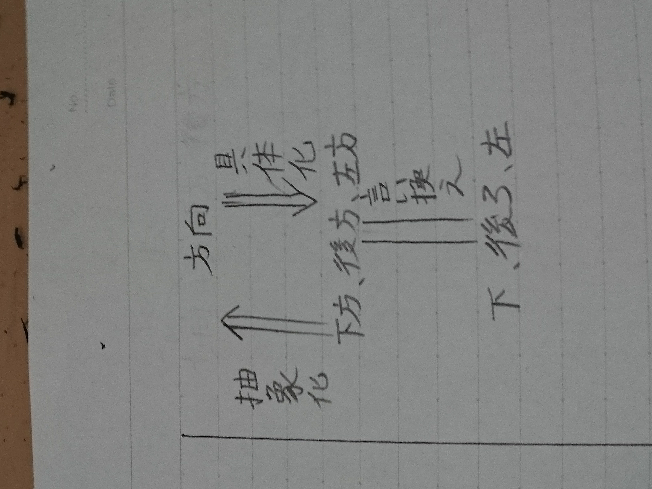 No
Date
方向
具体化
抽象化
下方、後方、左方
言い換え
下、後ろ、左